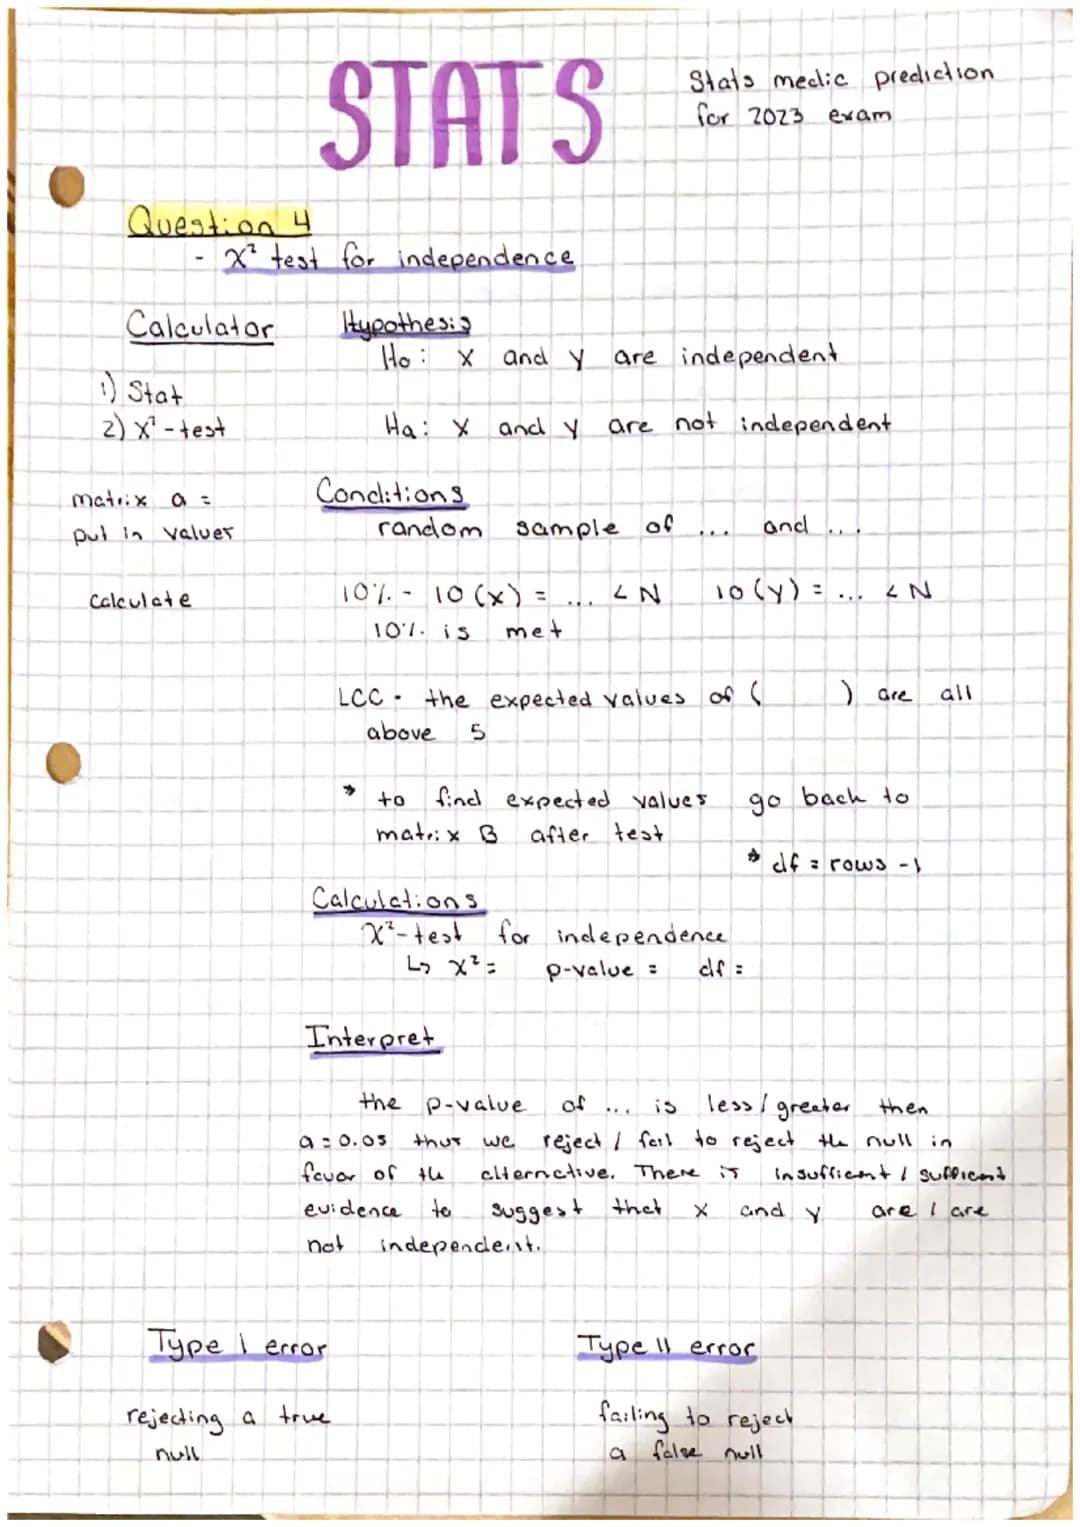 STATS
Stats medic prediction
for 2023 exam
Question 4
- X² test for independence
Calculator
Hypothesis
Ho: x and y are independent
1) Stat
2) X² - test
Ha: x and y are not independent
matrix a =
put in values
Conditions
random sample of ... and ...
calculate
10% - 10 (x) = ... < N 10 (y) = ... < N
10% is met
LCC - the expected values of ( ) are all
above 5
* to find expected values go back to
matrix B after test
* df = rows -1
Calculations
X²-test for independence
↳ X² = p-value = df =
Interpret
the p-value of ... is less / greater then
a = 0.05 thus we reject / fail to reject the null in
favor of the alternative. There is insufficient / sufficient
evidence to suggest that x and y are / are
not independent.
Type I error
Type II error
rejecting a true
null
failing to reject
a false null